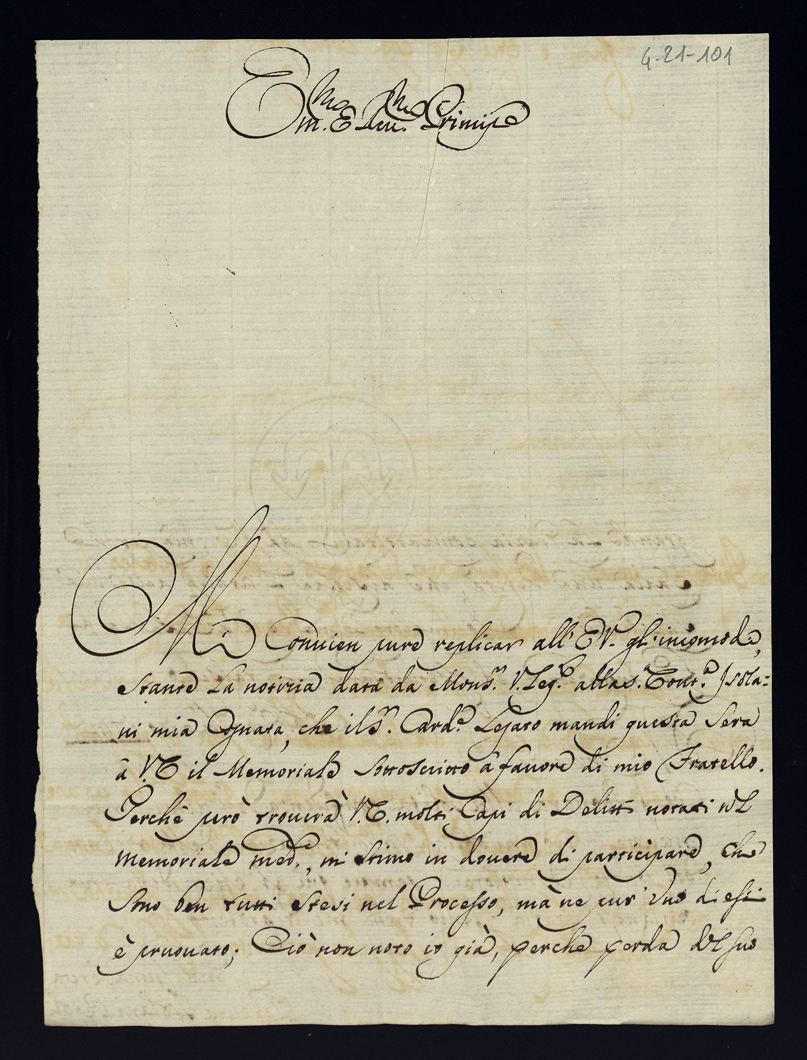 4-21-101
Em.mo E Rev.mo Principe
Mi Convien pure replicar all' E V. gl' incomodi,
stante la notizia data da Mons.r V. Leg.o alla S.a Cont.a Isola=
ni mia Cognata, che il S.r Card.e Legato mandi questa sera
à V. E il Memoriale sottoscritto à favore di mio Fratello.
Perchè però troverà V. E. molti Capi di Delitti notati nel
Memoriale med.o, mi stimo in dovere di participare, che
sono ben tutti stesi nel Processo, mà ne pur' Uno di essi
è pruovato; Ciò non noto io già, perchè perda del suo